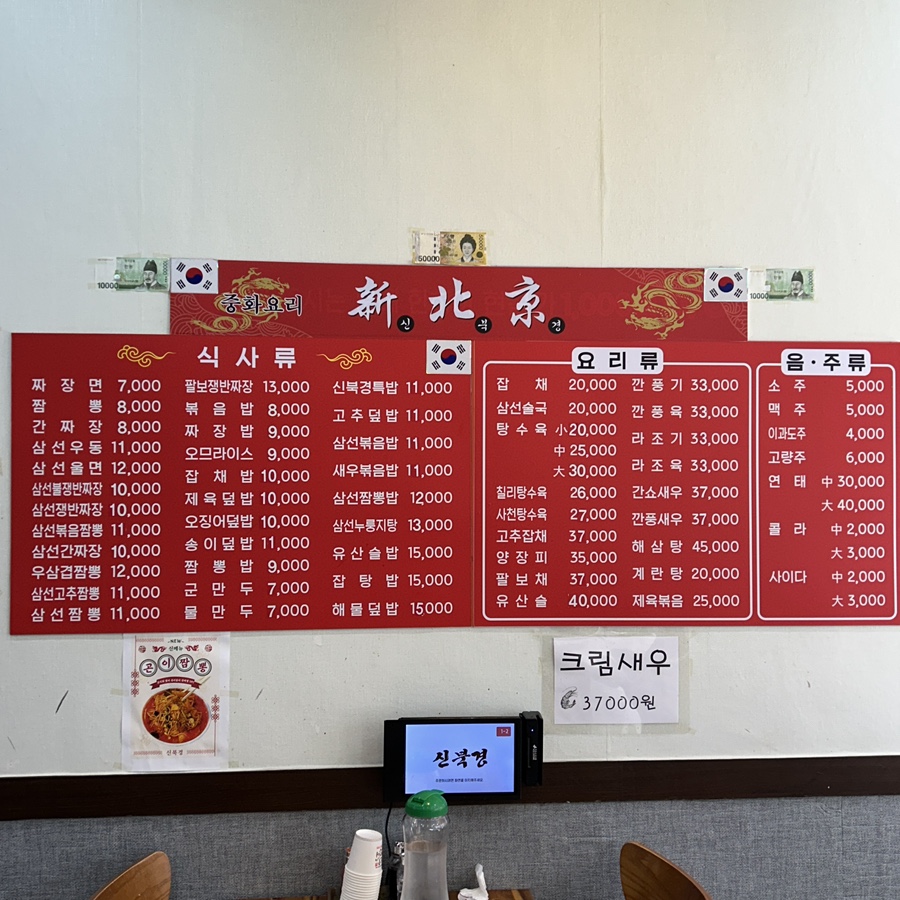 50000
10000
10000
중화요리 新北京
신 북 경
식사류
짜장면 7,000
짬뽕 8,000
간짜장 8,000
삼선우동 11,000
삼선울면 12,000
삼선불쟁반짜장 10,000
삼선쟁반짜장 10,000
삼선볶음짬뽕 11,000
삼선간짜장 10,000
우삼겹짬뽕 12,000
삼선고추짬뽕 11,000
삼선짬뽕 11,000
팔보쟁반짜장 13,000
볶음밥 8,000
짜장밥 9,000
오므라이스 9,000
잡채밥 10,000
제육덮밥 10,000
오징어덮밥 10,000
송이덮밥 11,000
짬뽕밥 9,000
군만두 7,000
물만두 7,000
신북경특밥 11,000
고추덮밥 11,000
삼선볶음밥 11,000
새우볶음밥 11,000
삼선짬뽕밥 12000
삼선누룽지탕 13,000
유산슬밥 15,000
잡탕밥 15,000
해물덮밥 15000
요리류
잡채 20,000
삼선술국 20,000
탕수육 小20,000
中25,000
大30,000
칠리탕수육 26,000
사천탕수육 27,000
고추잡채 37,000
양장피 35,000
팔보채 37,000
유산슬 40,000
깐풍기 33,000
깐풍육 33,000
라조기 33,000
라조육 33,000
간쇼새우 37,000
깐풍새우 37,000
해삼탕 45,000
계란탕 20,000
제육볶음 25,000
음·주류
소주 5,000
맥주 5,000
이과도주 4,000
고량주 6,000
연태 中30,000
大40,000
콜라 中2,000
大3,000
사이다 中2,000
大3,000
NEW
신메뉴
곤이짬뽕
신북경
크림새우
37000원
1-3
신북경